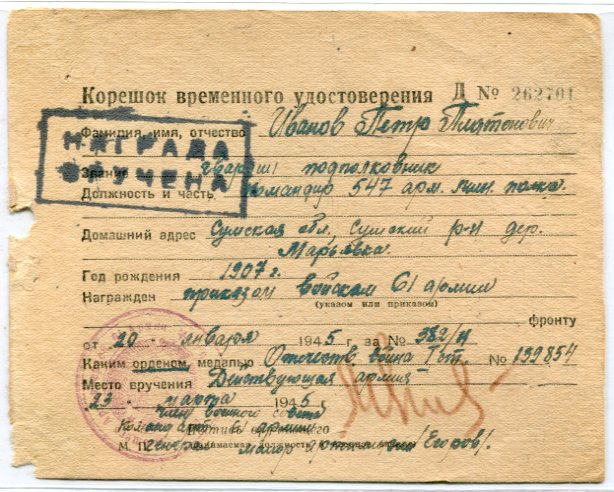 Корешок временного удостоверения Д № 262701
НАГРАДА
ВРУЧЕНА
Фамилия, имя, отчество Иванов Петр Платонович
Звание гвардии подполковник
Должность и часть командир 547 арм. мин. полка.
Домашний адрес Сумская обл, Сумский р-н дер.
Марьевка.
Год рождения 1907 г.
Награжден приказом войскам 61 армии
(указом или приказом)
фронту
от 20 января 1945 г. за № 382/н
Каким орденом, медалью Отечеств. война I ст. № 139854
Место вручения Действующая армия
23 марта 1945 г.
член военного совета
армии
М. П. генерал майор артиллерии /Егоров/.